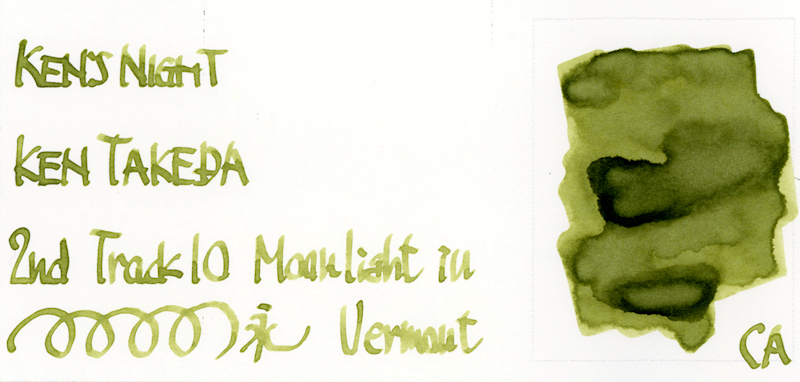 KEN'S NIGHT
KEN TAKEDA
2nd Track 10 Moonlight in
Vermont
CA